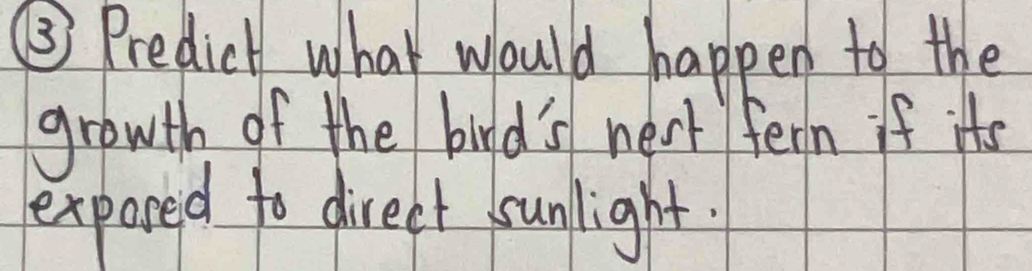 ③ Predict what would happen to the
growth of the bird's nest fern if its
exposed to direct sunlight.